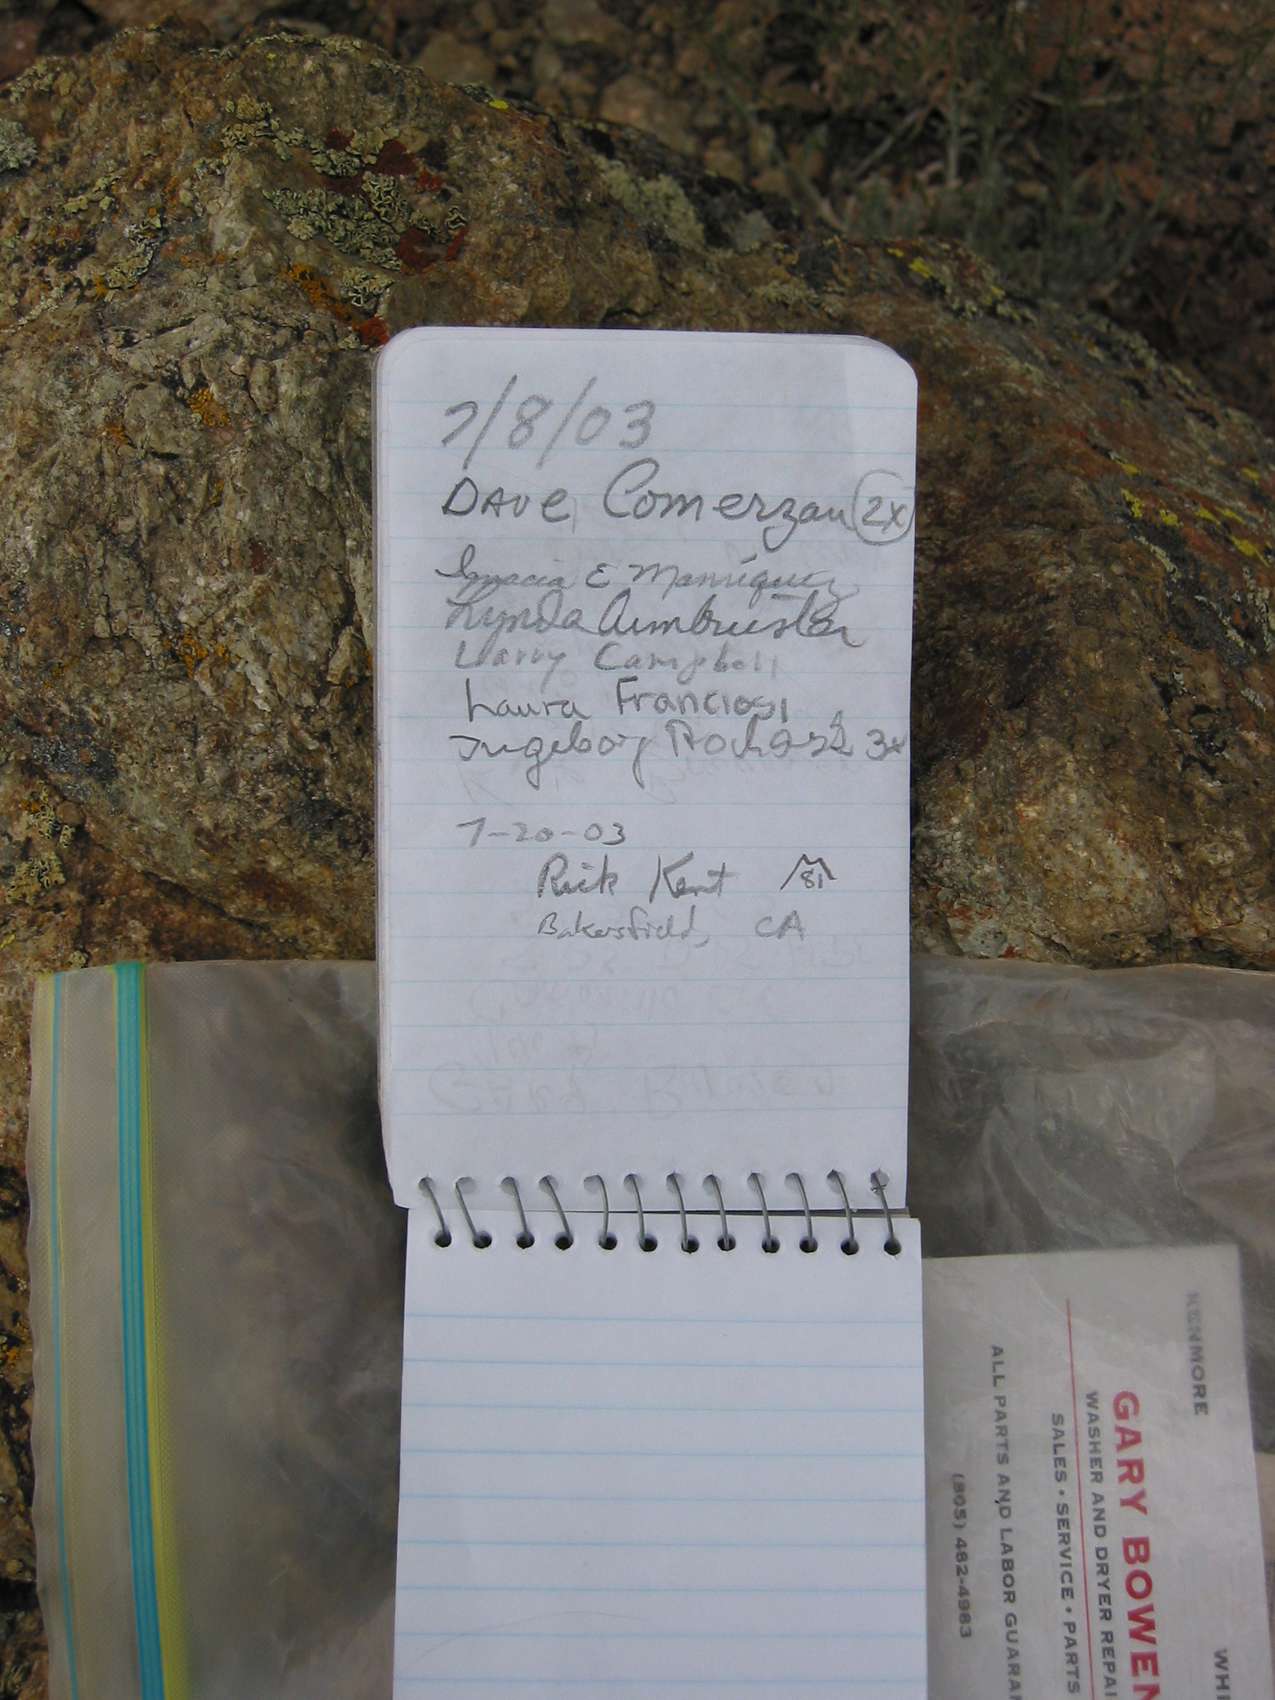 7/8/03
DAVE Comerzan 2X
Ignacia E Manriquez
Lynda Armbruster
Larry Campbell
Laura Franciosi
Ingeborg 3x
7-20-03
Rick Kent 81
Bakersfield, CA
KENMORE WHI
GARY BOWEN
WASHER AND DRYER REPAI
SALES • SERVICE • PARTS
ALL PARTS AND LABOR GUARAN
(805) 482-4983